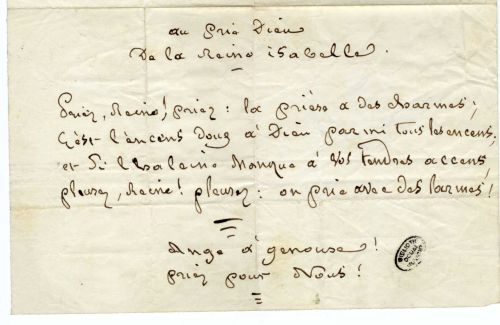 au prie Dieu
De la Reine isabelle.
Priez, Reine! priez : la prière a des charmes ;
C'est l'encens doux à Dieu parmi tous les encens ;
et Si l'haleine Manque à Vos tendres accens,
pleurez, Reine! pleurez : on prie avec des larmes!
Ange à genoux!
priez pour Nous!